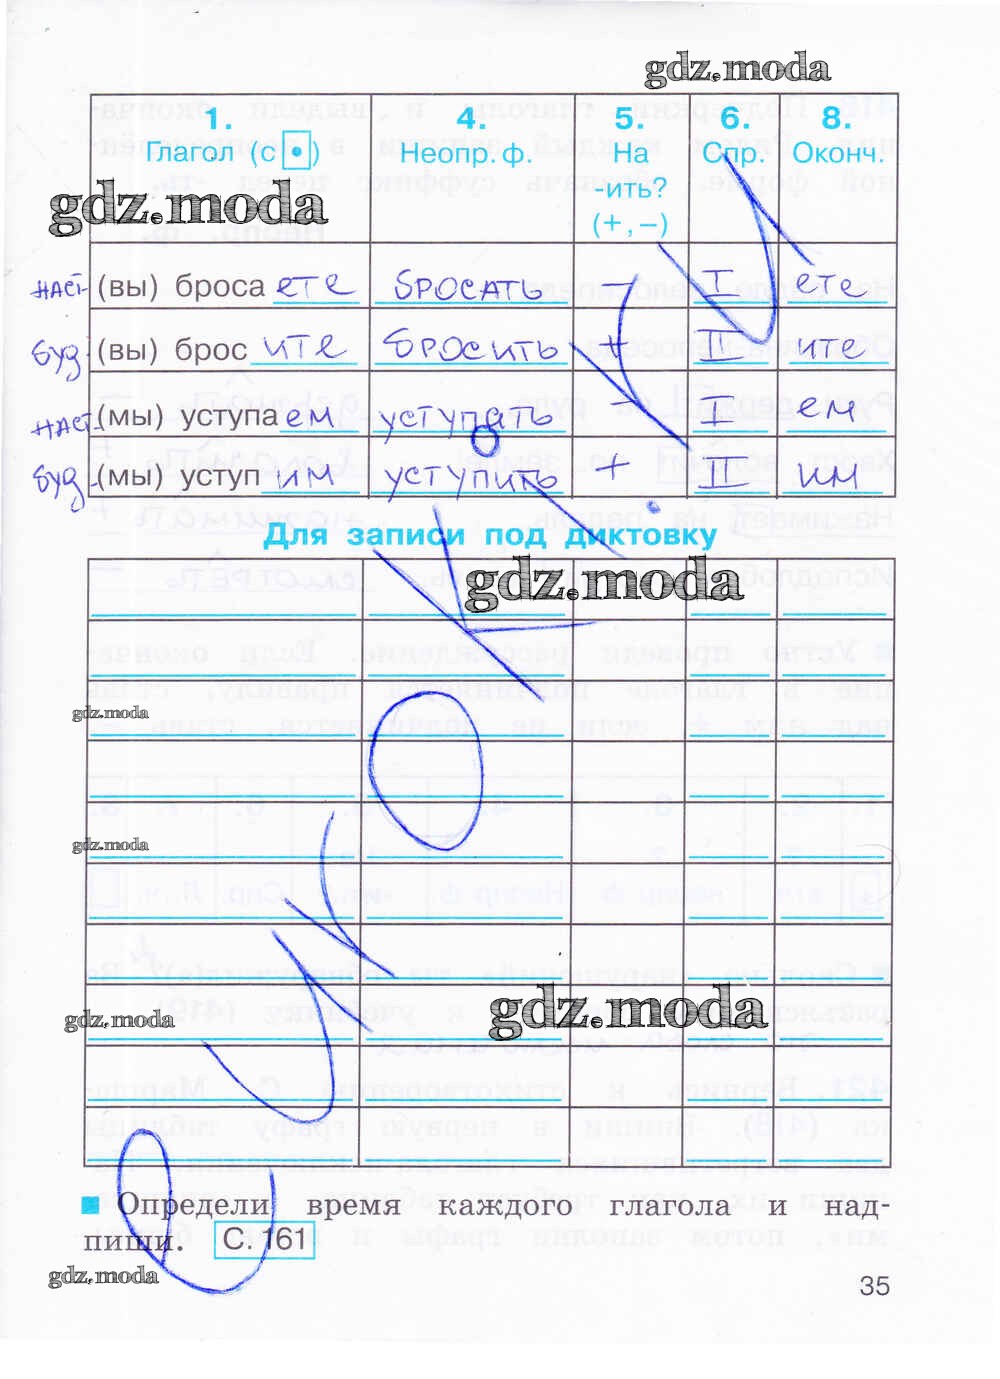 gdz.moda
1. 4. 5. 6. 8.
Глагол (с •) Неопр. ф. На Спр. Оконч.
-ить?
(+, –)
gdz.moda
наст. (вы) бросаете бросать – I ете
буд. (вы) бросите бросить + II ите
наст. (мы) уступаем уступать – I ем
буд. (мы) уступим уступить + II им
Для записи под диктовку
gdz.moda
gdz.moda
gdz.moda
gdz.moda
gdz.moda
Определи время каждого глагола и над-
пиши. С. 161
gdz.moda
35